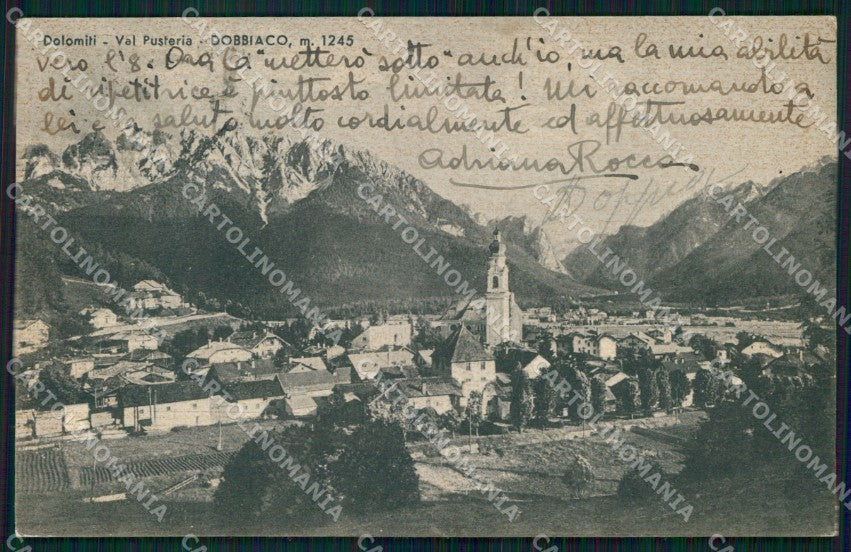 Dolomiti - Val Pusteria - DOBBIACO, m. 1245
vero l'8. Ora la "metterò sotto" anch'io, ma la mia abilità
di ripetitrice è piuttosto limitata! Mi raccomando a
lei e la saluto molto cordialmente ed affettuosamente
Adriana Rocca
Doppia
CARTOLINOMANIA